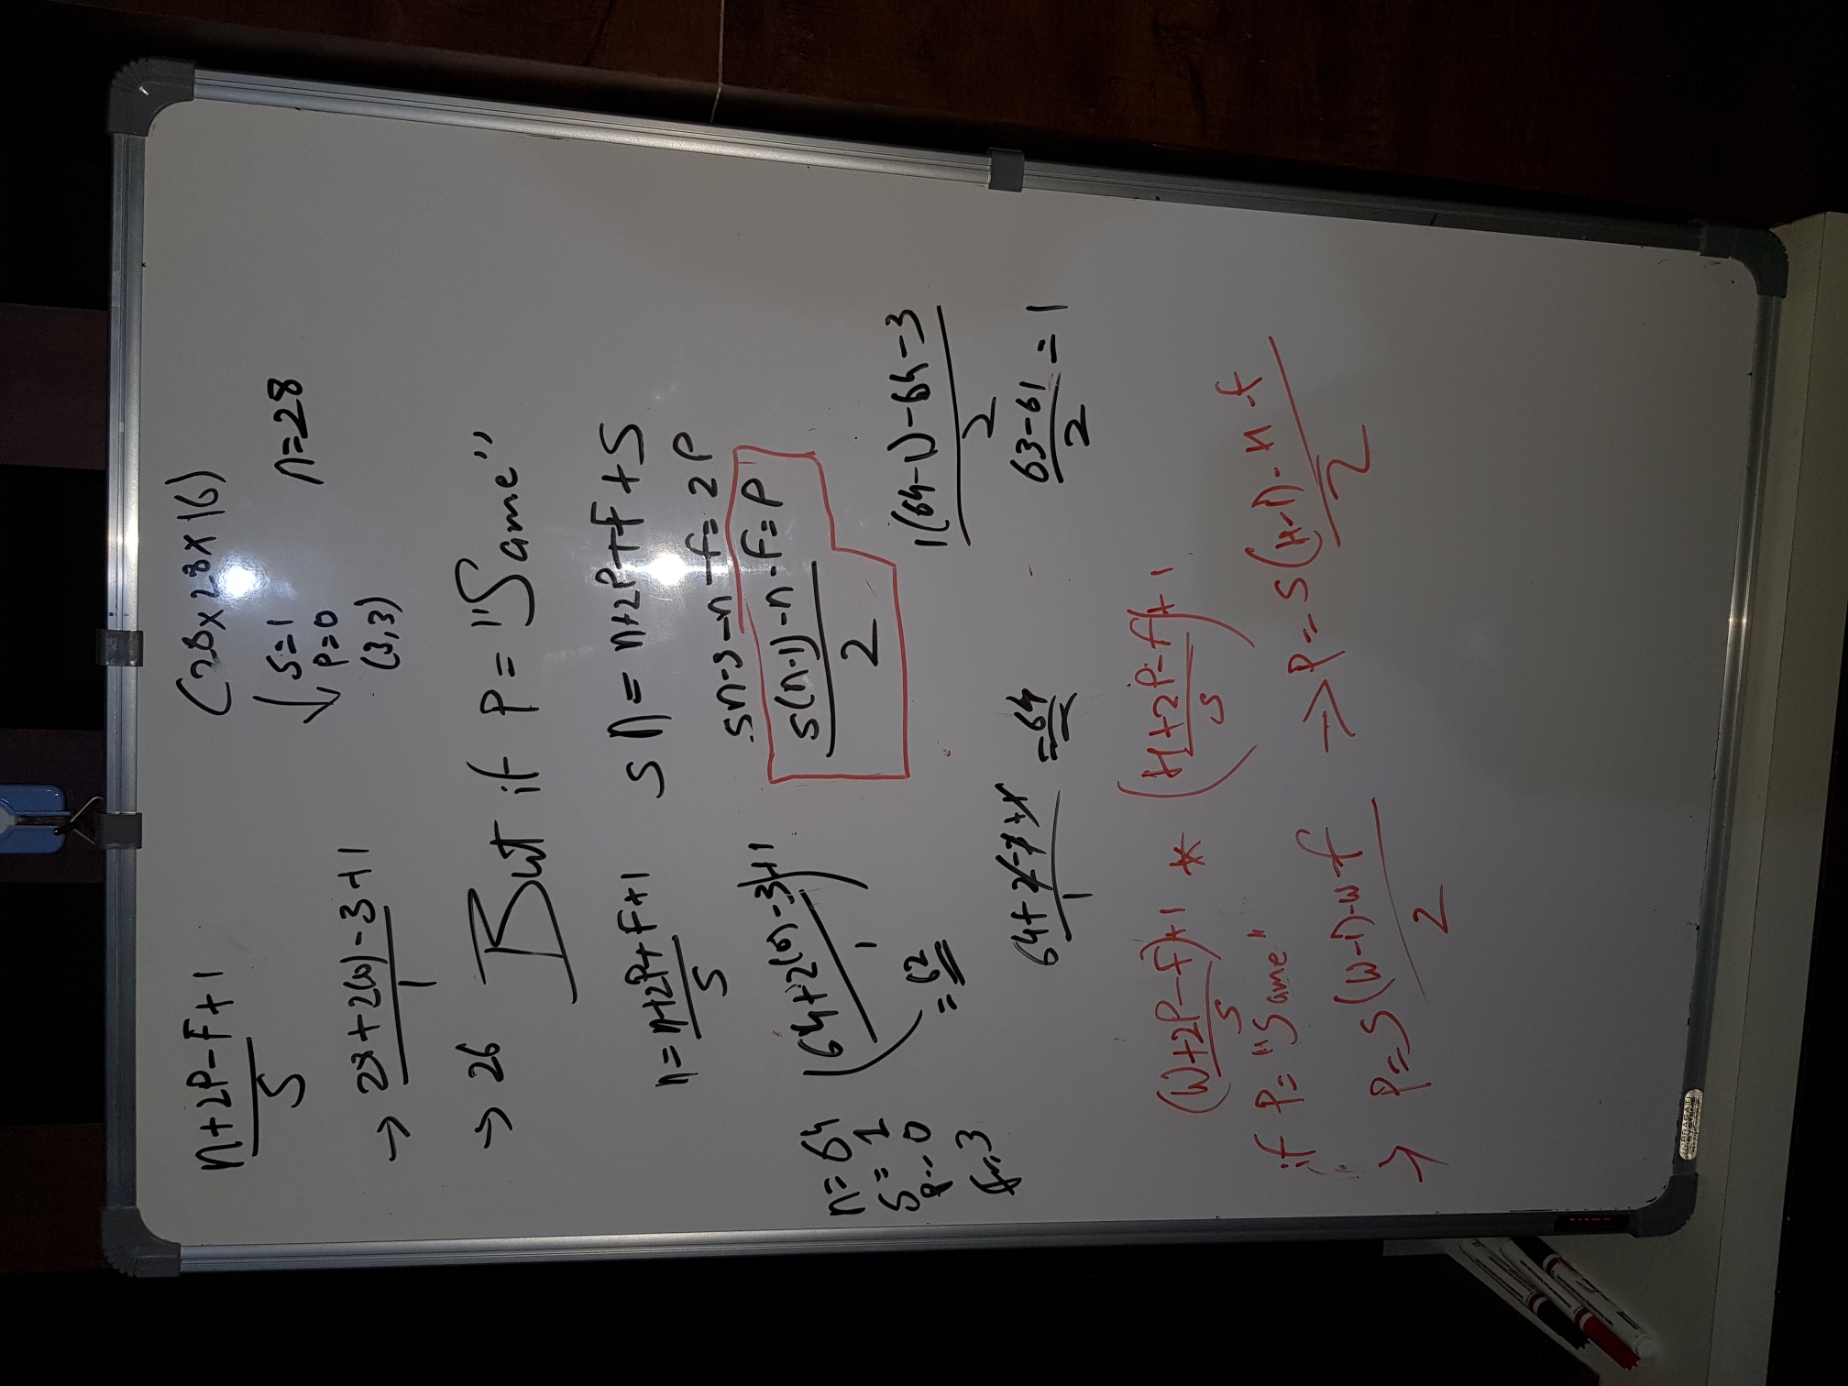 n+2P-F+1
S
(28×28×16)
↓ S=1
P=0
(3,3)
n=28
→ 28+2(0)-3+1
1
→ 26
But if P = "Same"
n= n+2P+F+1
S
S n = n+2P+F+S
sn-s-n-f= 2P
s(n-1)-n-F=P
2
n= 64
S= 1
P-- 0
f=3
(64+2(0)-3)+1
1
= 62
1(64-1)-64-3
2
64+2-3+1 =64
1
63-61 = 1
2
(W+2P-F)+1 * (H+2P-f)+1
S S
if P= "Same"
→ P=S(W-1)-W-f
2
→ P= S(H-1)-H-f
2